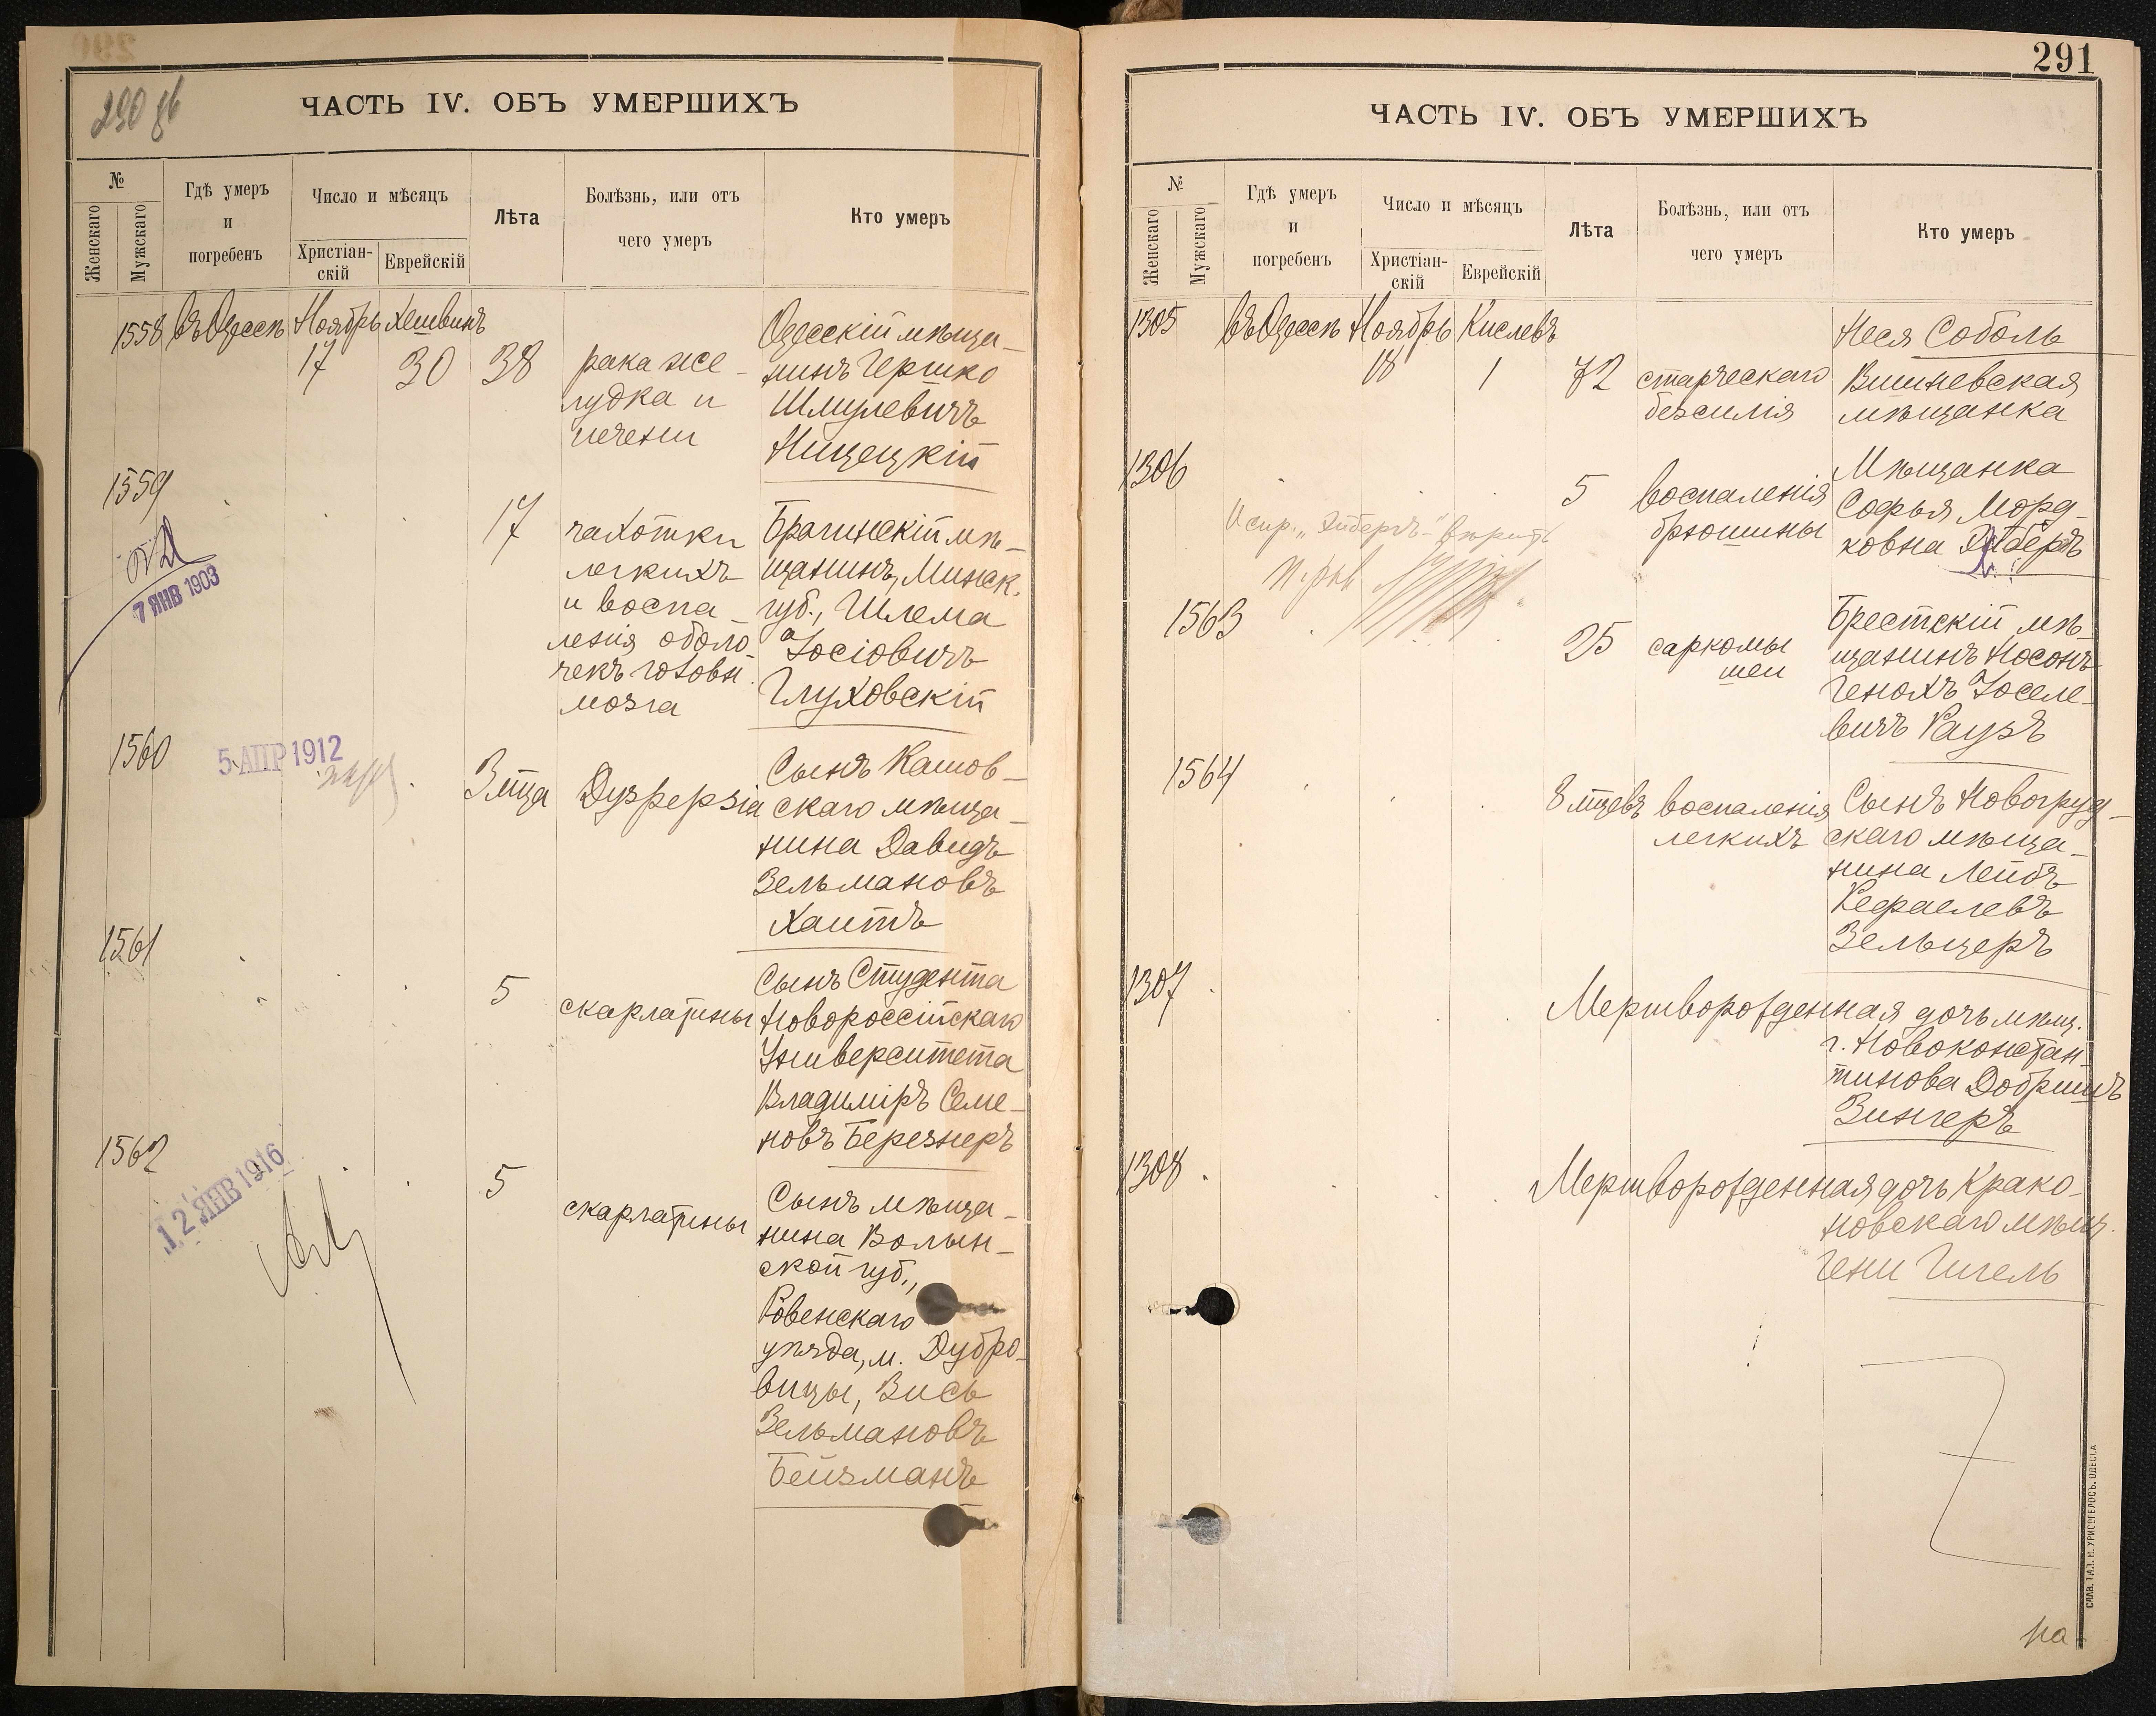 290 об
ЧАСТЬ IV. ОБЪ УМЕРШИХЪ
№
Женскаго
Мужскаго
Гдѣ умеръ
и
погребенъ
Число и мѣсяцъ
Христіан-
скій
Еврейскій
Лѣта
Болѣзнь, или отъ
чего умеръ
Кто умеръ
1558 въ Одессѣ Ноябрь Хешвинъ
17 30 38
рака же-
лудка и
печени
Одесскій мѣща-
нинъ Гершко
Шмулевичъ
Нищецкій
1559
7 ЯНВ 1903
17
чахотки
легкихъ
и воспа-
ленія оболо-
чекъ головн.
мозга
Брагинскій мѣ-
щанинъ, Минск.
губ., Шлема
Іосіовичъ
Глуховскій
1560
5 АПР 1912
3 мца
Дузрерзіа
Сынъ Камов-
скаго мѣща-
нина Давидъ
Зельмановъ
Хаитъ
1561
5
скарлатины
Сынъ Студента
Новороссійскаго
Университета
Владиміръ Семе-
новъ Березнеръ
1562
12 ЯНВ 1916
5
скарлатины
Сынъ мѣща-
нина Волын-
ской губ.,
Ровенскаго
уѣзда, м. Дубро-
вицы, Зись
Зельмановъ
Бейзманъ
291
ЧАСТЬ IV. ОБЪ УМЕРШИХЪ
№
Женскаго
Мужскаго
Гдѣ умеръ
и
погребенъ
Число и мѣсяцъ
Христіан-
скій
Еврейскій
Лѣта
Болѣзнь, или отъ
чего умеръ
Кто умеръ
1305 въ Одессѣ Ноябрь Кислевъ
18 1 72
старческаго
безсилія
Неся Соболь
Вишневская
мѣщанка
1306
5
воспаленія
брюшины
Мѣщанка
Софья Морд-
ковна Эйберъ
Испр. „Эйберъ" вѣрить
1563
25
саркомы
шеи
Брестскій мѣ-
щанинъ Носонъ
Генохъ Іоселе-
вичъ Раузъ
1564
8 мцевъ
воспаленія
легкихъ
Сынъ Новогруд-
скаго мѣща-
нина Лейбъ
Рефаелевъ
Зельцеръ
1307
Мертворожденная дочь мѣщ.
г. Новоконстан-
тинова Добришъ
Зингеръ
1308
Мертворожденная дочь Крако-
новскаго мѣщ.
Гени Гигель
на